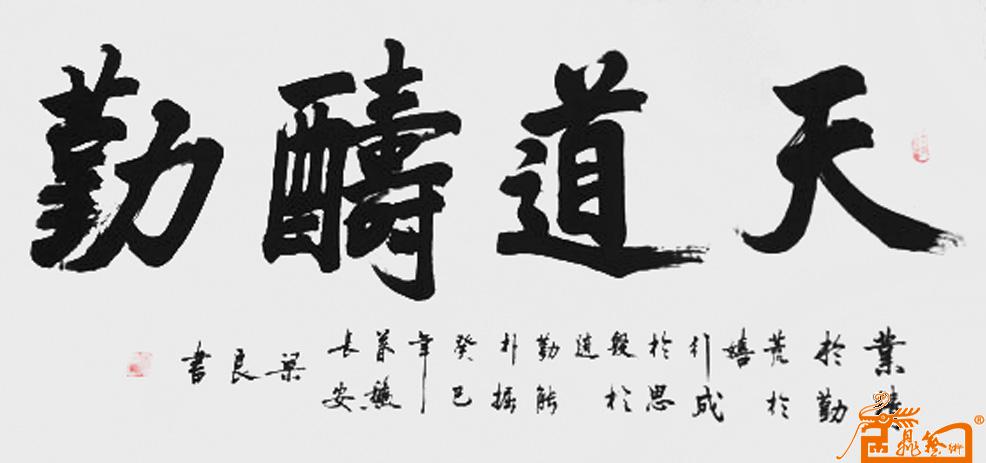 天道醻勤
業精
於勤
荒於
嬉
行成
於思
毀於
勤能
癸巳
年
長安
梁良書